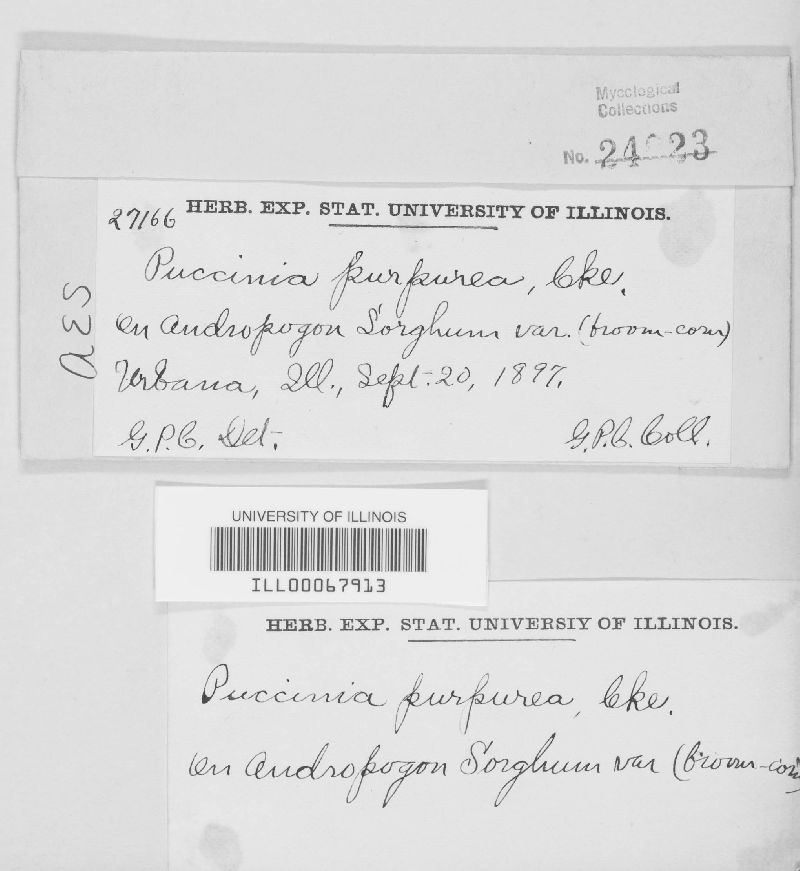 Mycological
Collections
No. 24023
27166 HERB. EXP. STAT. UNIVERSITY OF ILLINOIS.
Puccinia purpurea, Cke.
on Andropogon Sorghum var. (broom-corn)
Urbana, Ill., Sept. 20, 1897.
G.P.C. Det. G.P.C. Coll.
AES
UNIVERSITY OF ILLINOIS
ILL00067913
HERB. EXP. STAT. UNIVERSIY OF ILLINOIS.
Puccinia purpurea, Cke.
on Andropogon Sorghum var (broom-corn)